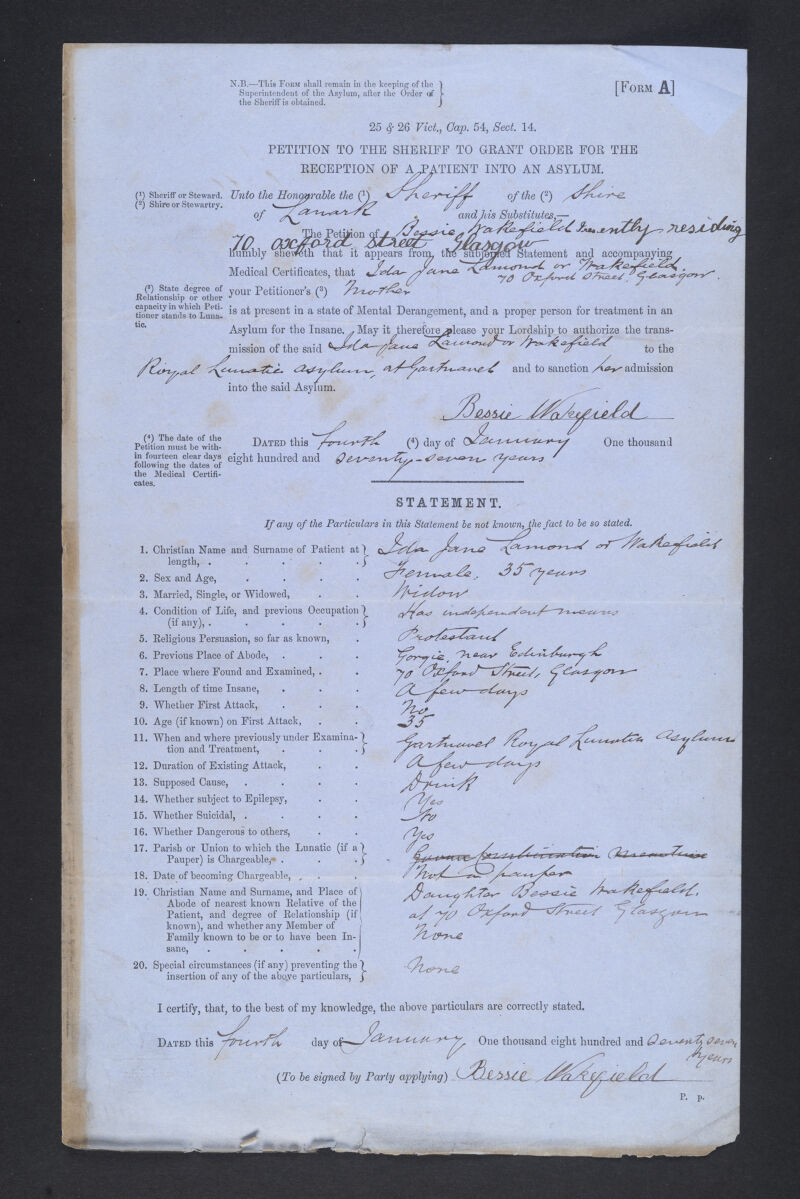 N.B.—This Form shall remain in the keeping of the
Superintendent of the Asylum, after the Order of
the Sheriff is obtained.
[Form A]
25 & 26 Vict., Cap. 54, Sect. 14.
PETITION TO THE SHERIFF TO GRANT ORDER FOR THE
RECEPTION OF A PATIENT INTO AN ASYLUM.
(1) Sheriff or Steward.
(2) Shire or Stewartry.
Unto the Honourable the (1) Sheriff of the (2) Shire
of Lanark and his Substitutes,—
The Petition of Bessie Wakefield residing
70 oxford street Glasgow
humbly sheweth that it appears from the subjoined Statement and accompanying
Medical Certificates, that Ida Jane Lamond or Wakefield
70 Oxford Street, Glasgow.
(3) State degree of
Relationship or other
capacity in which Peti-
tioner stands to Luna-
tic.
your Petitioner's (3) Mother
is at present in a state of Mental Derangement, and a proper person for treatment in an
Asylum for the Insane. May it therefore please your Lordship to authorize the trans-
mission of the said Ida Jane Lamond or Wakefield to the
Royal Lunatic Asylum, at Gartnavel and to sanction her admission
into the said Asylum.
Bessie Wakefield
(4) The date of the
Petition must be with-
in fourteen clear days
following the dates of
the Medical Certifi-
cates.
Dated this fourth (4) day of January One thousand
eight hundred and seventy-seven years
STATEMENT.
If any of the Particulars in this Statement be not known, the fact to be so stated.
1. Christian Name and Surname of Patient at
length, . . . . . Ida Jane Lamond or Wakefield
2. Sex and Age, . . . . Female, 35 years
3. Married, Single, or Widowed, . . . Widow
4. Condition of Life, and previous Occupation
(if any), . . . . . Has independent means
5. Religious Persuasion, so far as known, . Protestant
6. Previous Place of Abode, . . . Gorgie, near Edinburgh
7. Place where Found and Examined, . . 70 Oxford Street, Glasgow
8. Length of time Insane, . . . A few days
9. Whether First Attack, . . . No
10. Age (if known) on First Attack, . . 35
11. When and where previously under Examina-
tion and Treatment, . . . Gartnavel Royal Lunatic Asylum
12. Duration of Existing Attack, . . A few days
13. Supposed Cause, . . . . Drink
14. Whether subject to Epilepsy, . . Yes
15. Whether Suicidal, . . . . No
16. Whether Dangerous to others, . . Yes
17. Parish or Union to which the Lunatic (if a
Pauper) is Chargeable, . . .
18. Date of becoming Chargeable, . . . Not a pauper
19. Christian Name and Surname, and Place of
Abode of nearest known Relative of the
Patient, and degree of Relationship (if
known), and whether any Member of
Family known to be or to have been In-
sane, . . . . . .
Daughter Bessie Wakefield,
at 70 Oxford Street Glasgow
None
20. Special circumstances (if any) preventing the
insertion of any of the above particulars, None
I certify, that, to the best of my knowledge, the above particulars are correctly stated.
Dated this fourth day of January One thousand eight hundred and seventy seven
years
(To be signed by Party applying) Bessie Wakefield
P. p.